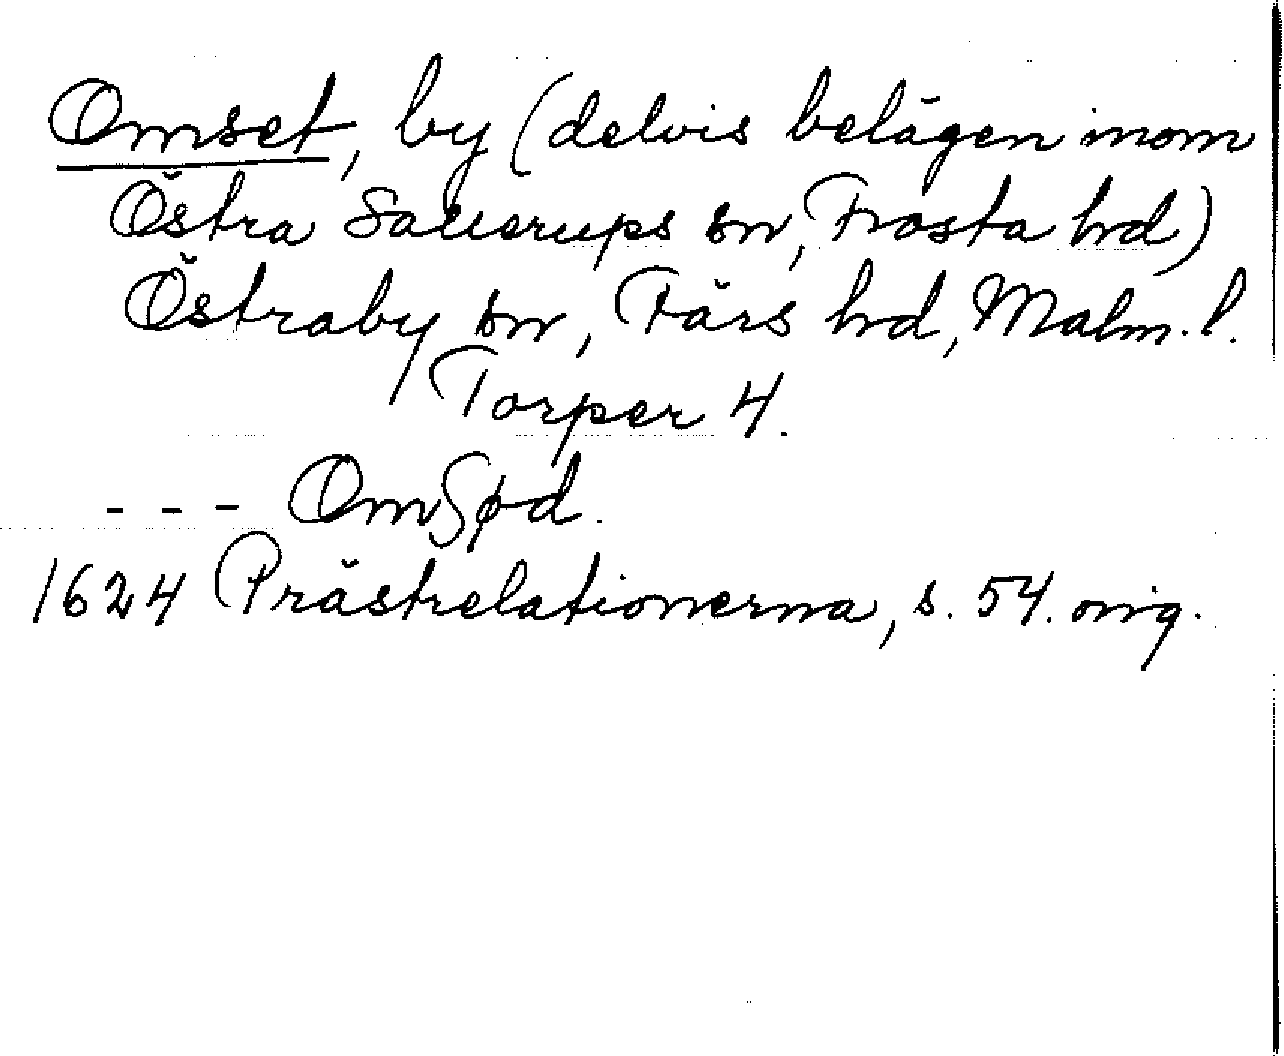 Omset, by (delvis belägen inom
Östra Sallerups sn, Frosta hd)
Östraby sn, Färs hd, Malm. l.
Torper 4.
--- OmSød.
1624 Prästrelationerna, s. 54. orig.